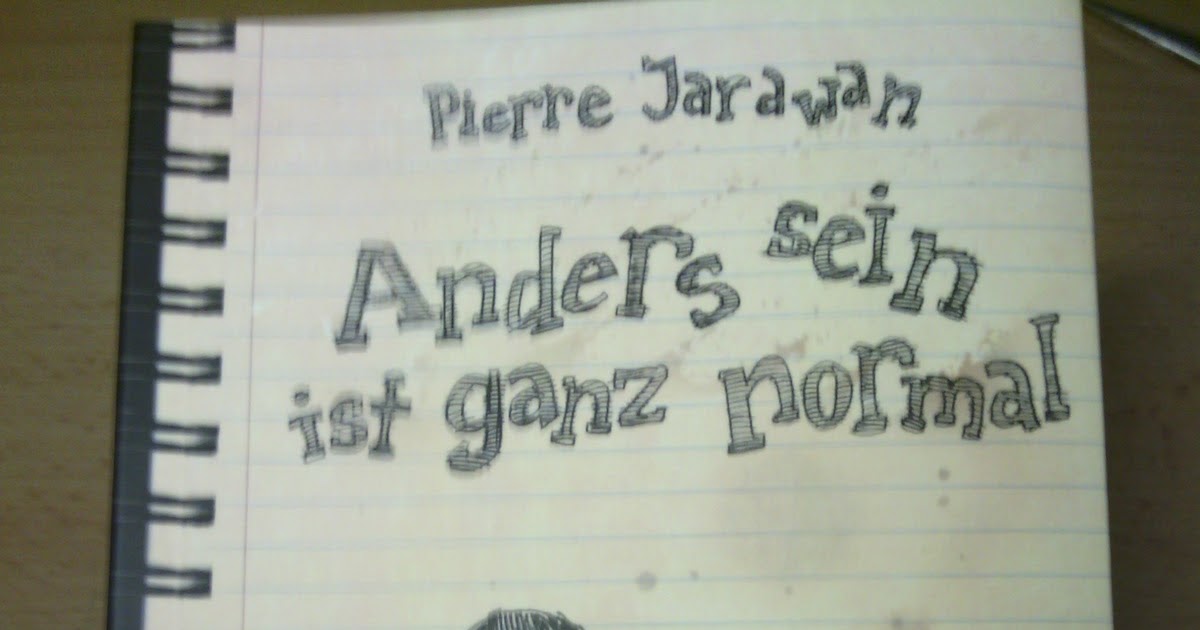 Pierre Jarawan
Anders sein
ist ganz normal